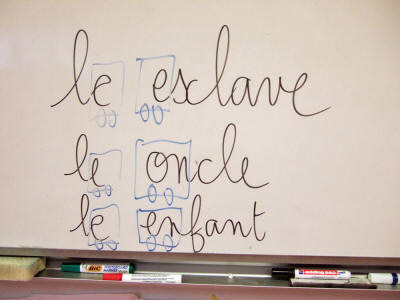 le esclave
le oncle
le enfant
BIC
edding 660